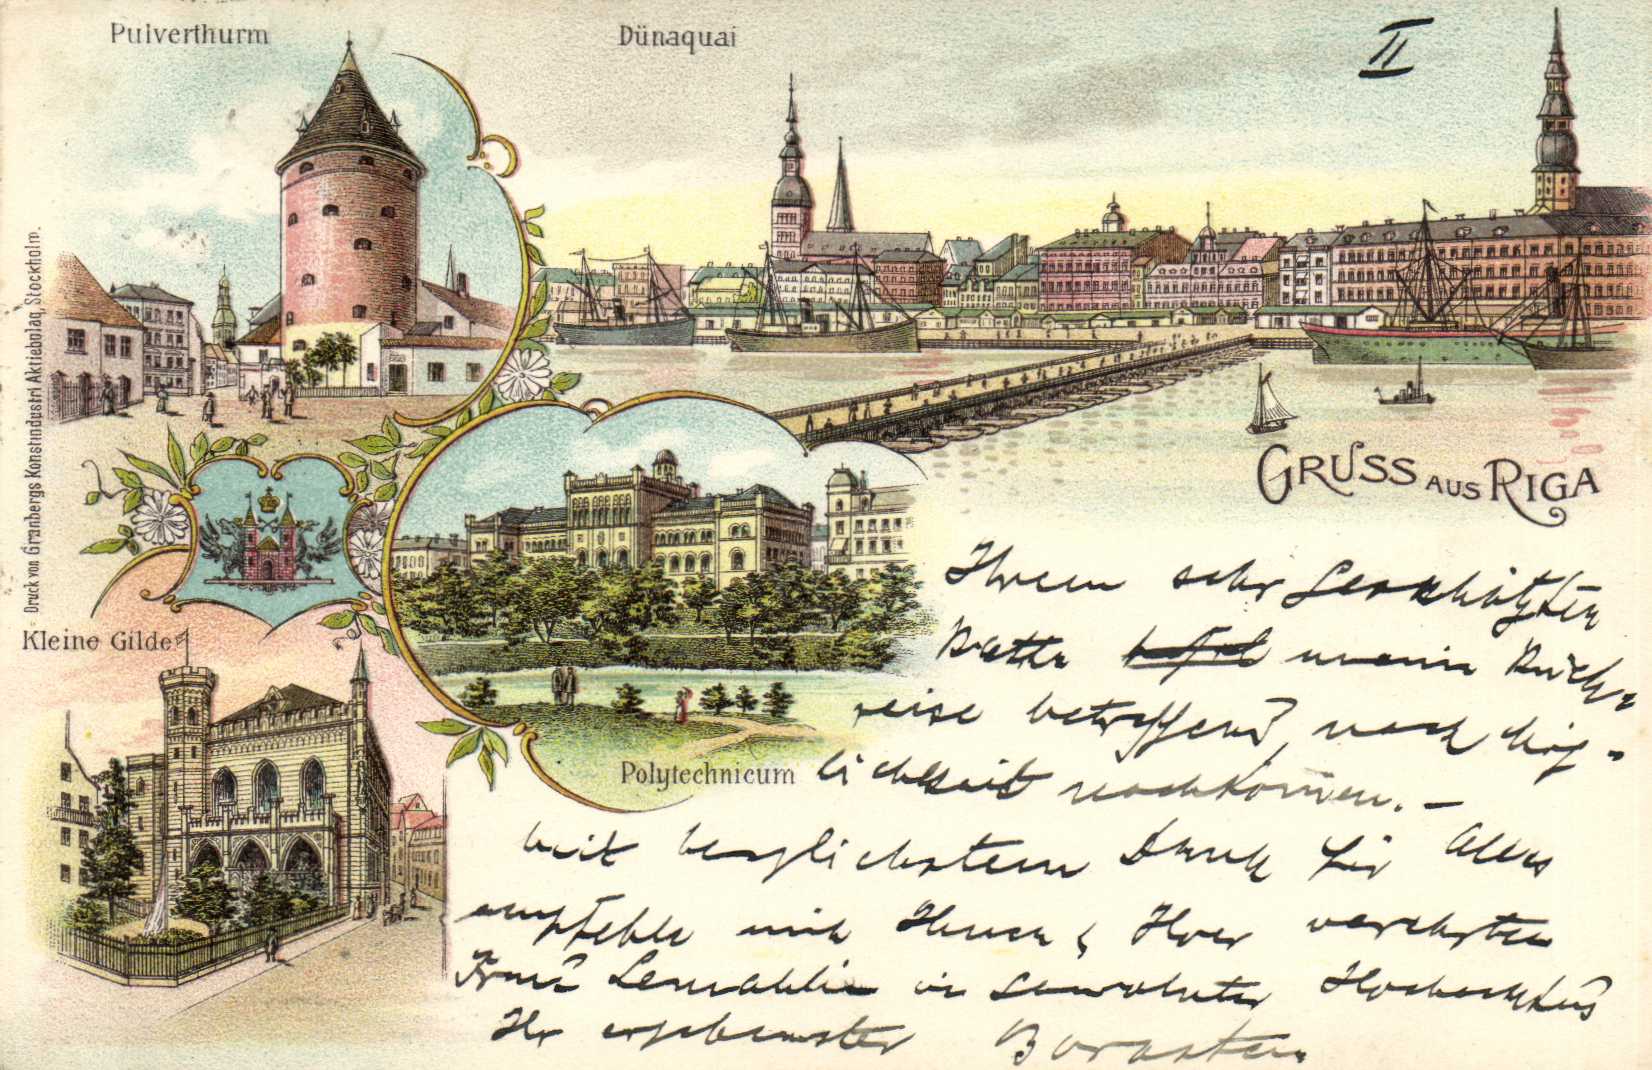 Pulverthurm
Dünaquai
II
Druck von Granbergs Konstindustri Aktiebolag, Stockholm.
GRUSS AUS RIGA
Kleine Gilde
Polytechnicum
Ihrem sehr geschätzten
Rathe meine Rück-
reise betreffend, nach Mög-
lichkeit nachkommen. —
Mit herzlichstem Dank für Alles
empfehle mich Ihnen & Ihrer verehrten
Frau Gemahlin in gewohnter Hochachtung
Ihr ergebenster